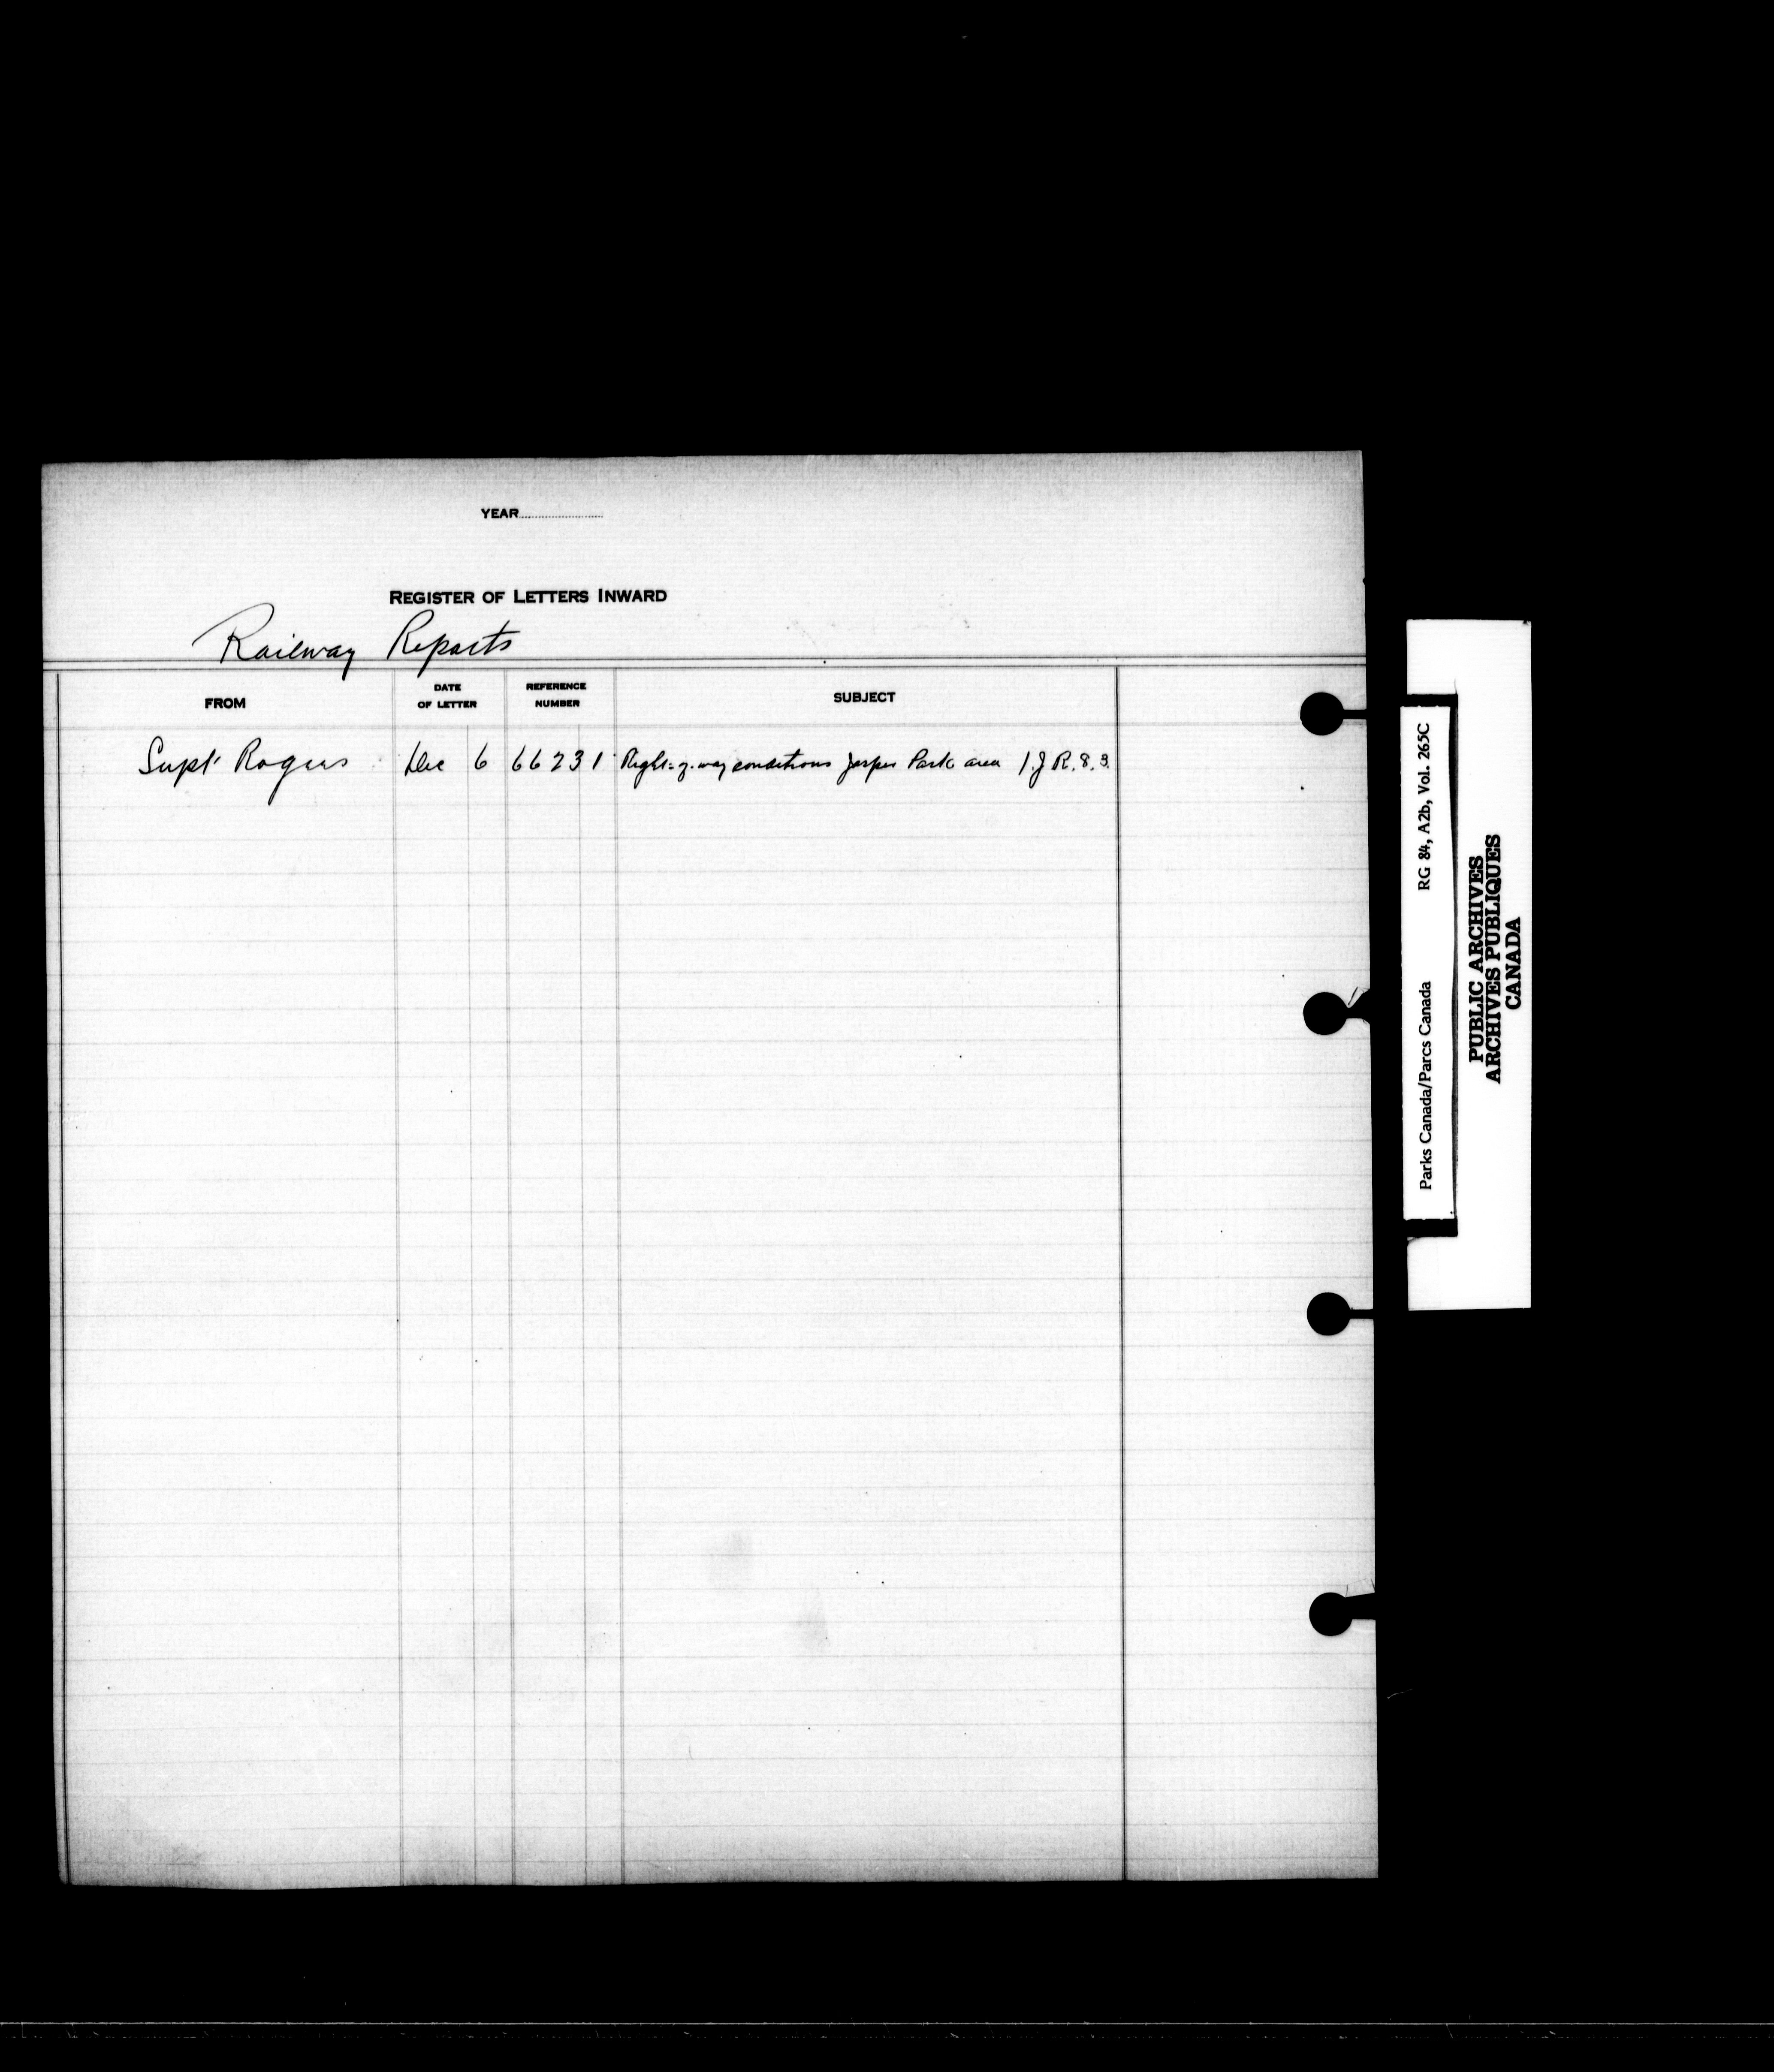 YEAR
REGISTER OF LETTERS INWARD
Railway Reports
FROM DATE OF LETTER REFERENCE NUMBER SUBJECT
Supt Rogers Dec 6 66231 Right-of-way conditions Jasper Park area 1.J R. 8. 3.
Parks Canada/Parcs Canada RG 84, A2b, Vol. 265C
PUBLIC ARCHIVES
ARCHIVES PUBLIQUES
CANADA